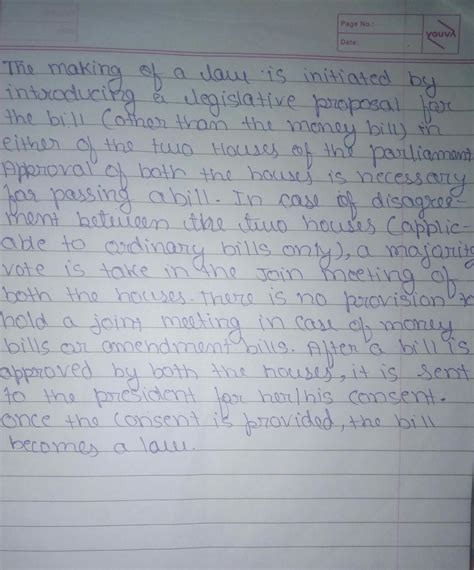 Page No.:
Date:
youva
The making of a law is initiated by
introducing a legislative proposal for
the bill (other than the money bill) in
either of the two Houses of the parliament
Approval of both the houses is necessary
for passing a bill. In case of disagree-
ment between the two houses (applic-
able to ordinary bills only), a majority
vote is take in the Join meeting of
both the houses. There is no provision to
hold a joint meeting in case of money
bills or amendment bills. After a bill is
approved by both the houses, it is sent
to the president for her/his consent.
once the consent is provided, the bill
becomes a law.